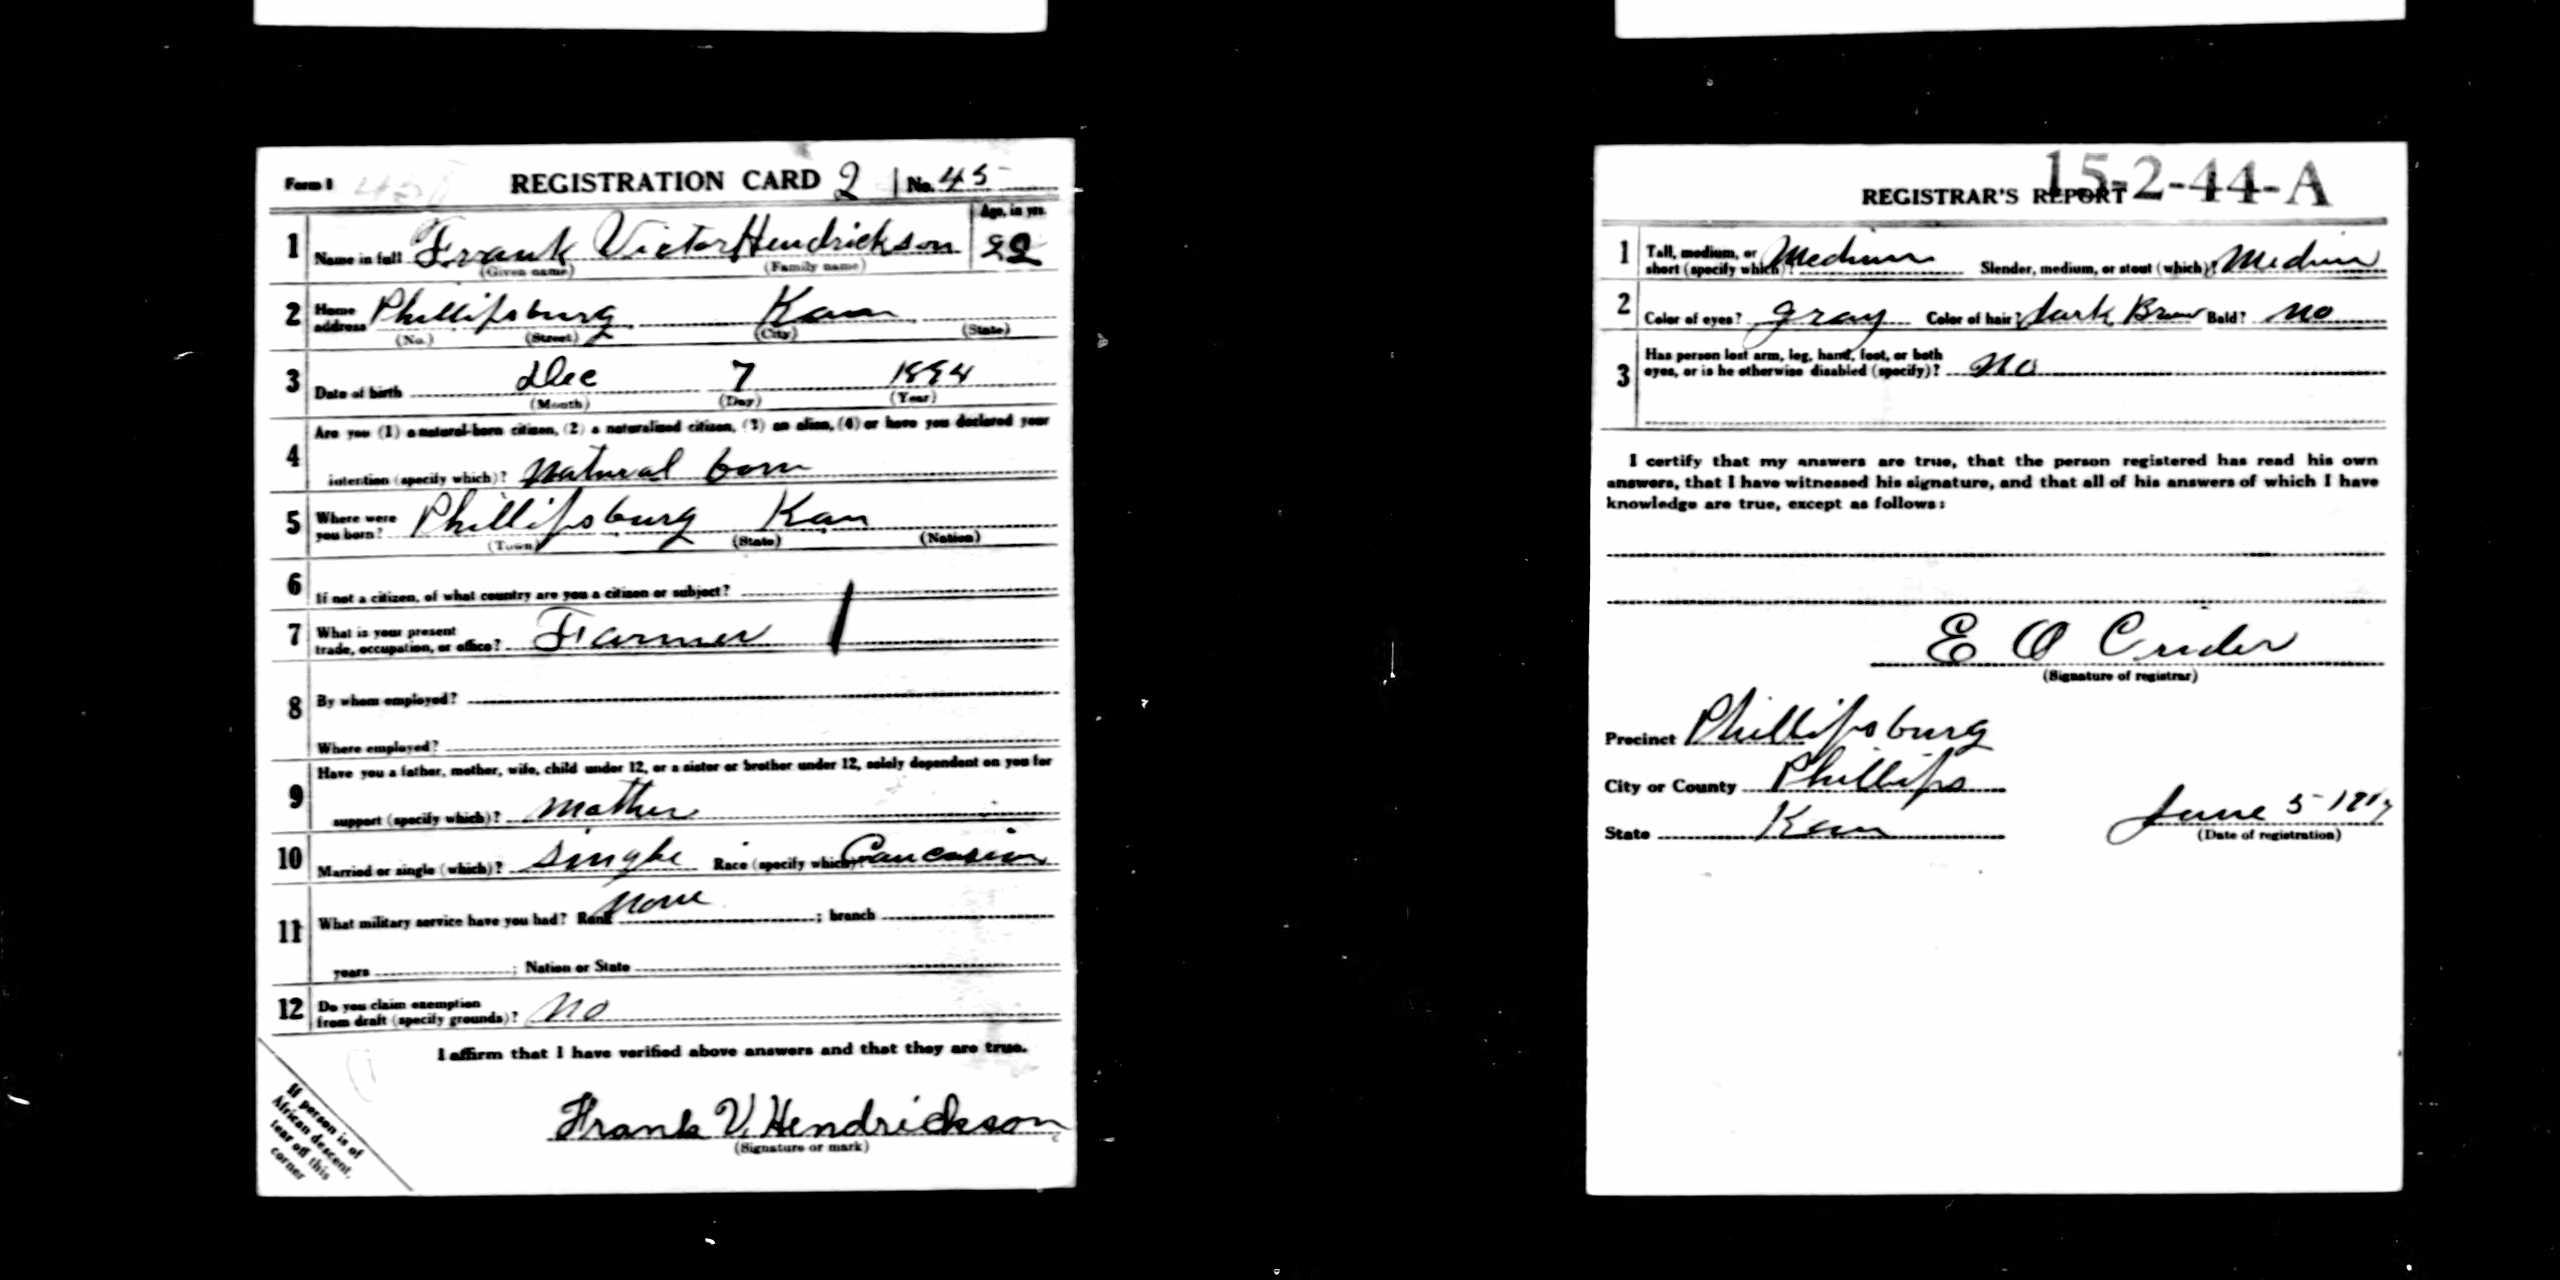 Form 1 REGISTRATION CARD 2 No. 45
1 Name in full Frank Victor Hendrickson Age, in yrs. 22
(Given name) (Family name)
2 Home address Phillipsburg Kan
(No.) (Street) (City) (State)
3 Date of birth Dec 7 1894
(Month) (Day) (Year)
4 Are you (1) a natural-born citizen, (2) a naturalized citizen, (3) an alien, (4) or have you declared your
intention (specify which)? Natural born
5 Where were you born? Phillipsburg Kan
(Town) (State) (Nation)
6 If not a citizen, of what country are you a citizen or subject?
7 What is your present
trade, occupation, or office? Farmer
8 By whom employed?
Where employed?
9 Have you a father, mother, wife, child under 12, or a sister or brother under 12, solely dependent on you for
support (specify which)? Mother
10 Married or single (which)? Single Race (specify which)? Caucasian
11 What military service have you had? Rank None ; branch
years ; Nation or State
12 Do you claim exemption
from draft (specify grounds)? No
I affirm that I have verified above answers and that they are true.
Frank V. Hendrickson
(Signature or mark)
If person is of
African descent,
tear off this
corner
15-2-44-A
REGISTRAR'S REPORT
1 Tall, medium, or
short (specify which)? Medium Slender, medium, or stout (which)? Medium
2 Color of eyes? Gray Color of hair? Dark Brown Bald? No
3 Has person lost arm, leg, hand, foot, or both
eyes, or is he otherwise disabled (specify)? No
I certify that my answers are true, that the person registered has read his own
answers, that I have witnessed his signature, and that all of his answers of which I have
knowledge are true, except as follows:
E O Crider
(Signature of registrar)
Precinct Phillipsburg
City or County Phillips
State Kan June 5 1917
(Date of registration)